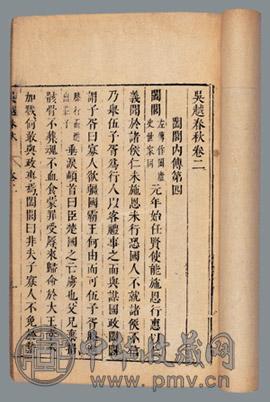 吳越春秋卷二
闔閭內傳第四
闔閭左傳作闔廬史世家同元年始任賢使能施恩行惠
義聞於諸侯仁未施恩未行恐國人不就諸侯不信
乃舉伍子胥爲行人以客禮事之而與謀國政闔閭
謂子胥曰寡人欲彊國霸王何由而可伍子胥膝
垂淚頓首曰臣楚國之亡虜也父兄棄捐
骸骨不葬魂不血食蒙罪受辱來歸命於大王
加戮何敢與政事焉闔閭曰非夫子寡人不免於
吳越春秋
中华收藏网
www.pmv.cn